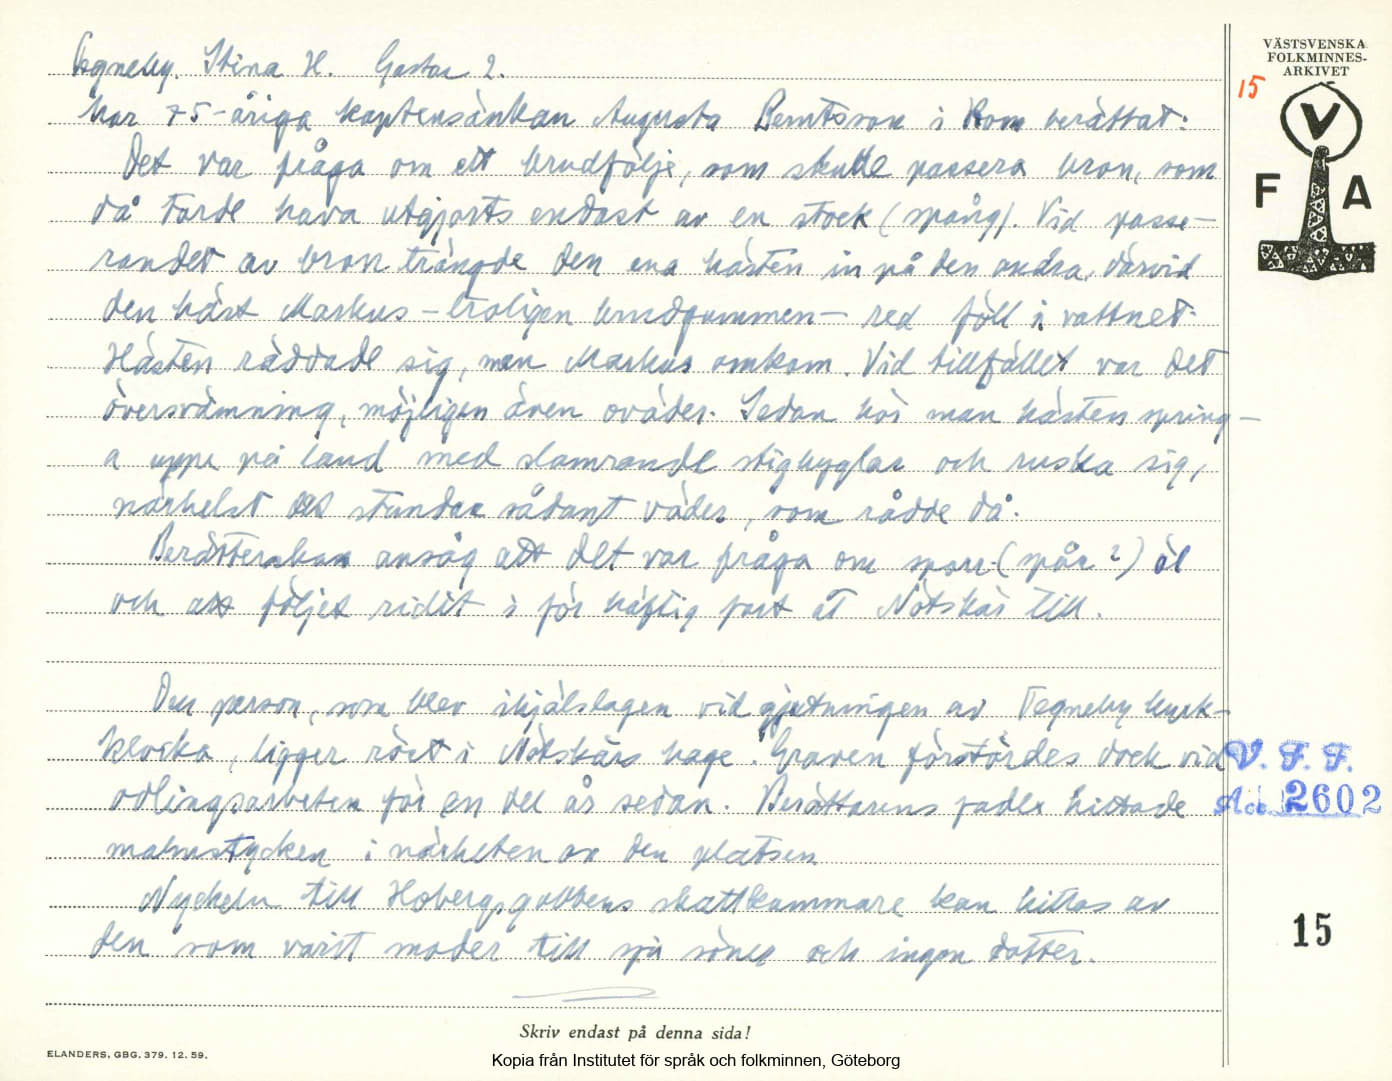 Tegneby. Stina H. Gastar 2.
har 75-åriga kaptensänkan Augusta Berntsson i Rom berättat:
Det var fråga om ett brudfölje, som skulle passera bron, som
då torde hava utgjorts endast av en stock (spång). Vid passe-
randet av bron trängde den ena hästen in på den andra, varvid
den häst Markus – troligen brudgummen – red föll i vattnet.
Hästen räddade sig, men Markus omkom. Vid tillfället var det
översvämning, möjligen även oväder. Sedan hör man hästen spring-
a uppe på land med slamrande stigbyglar och ruska sig,
närhelst det stundar sådant väder, som rådde då.
Berätterskan ansåg att det var fråga om sporr-(spår?) öl
och att följet ridit i för häftig fart åt Nötskär till.
Den person, som blev ihjälslagen vid gjutningen av Tegneby kyrk-
klocka, ligger röset i Nötskärs hage. Graven förstördes dock vid
odlingsarbeten för en del år sedan. Berättarens fader hittade
malmstycken i närheten av den platsen
Nyckeln till Hobergsgubbens skattkammare kan hittas av
den som varit moder till sju söner och ingen dotter.
VÄSTSVENSKA
FOLKMINNES-
ARKIVET
15
V
F A
V. F. F.
Acc. 2602
15
Skriv endast på denna sida!
ELANDERS, GBG. 379. 12. 59.
Kopia från Institutet för språk och folkminnen, Göteborg